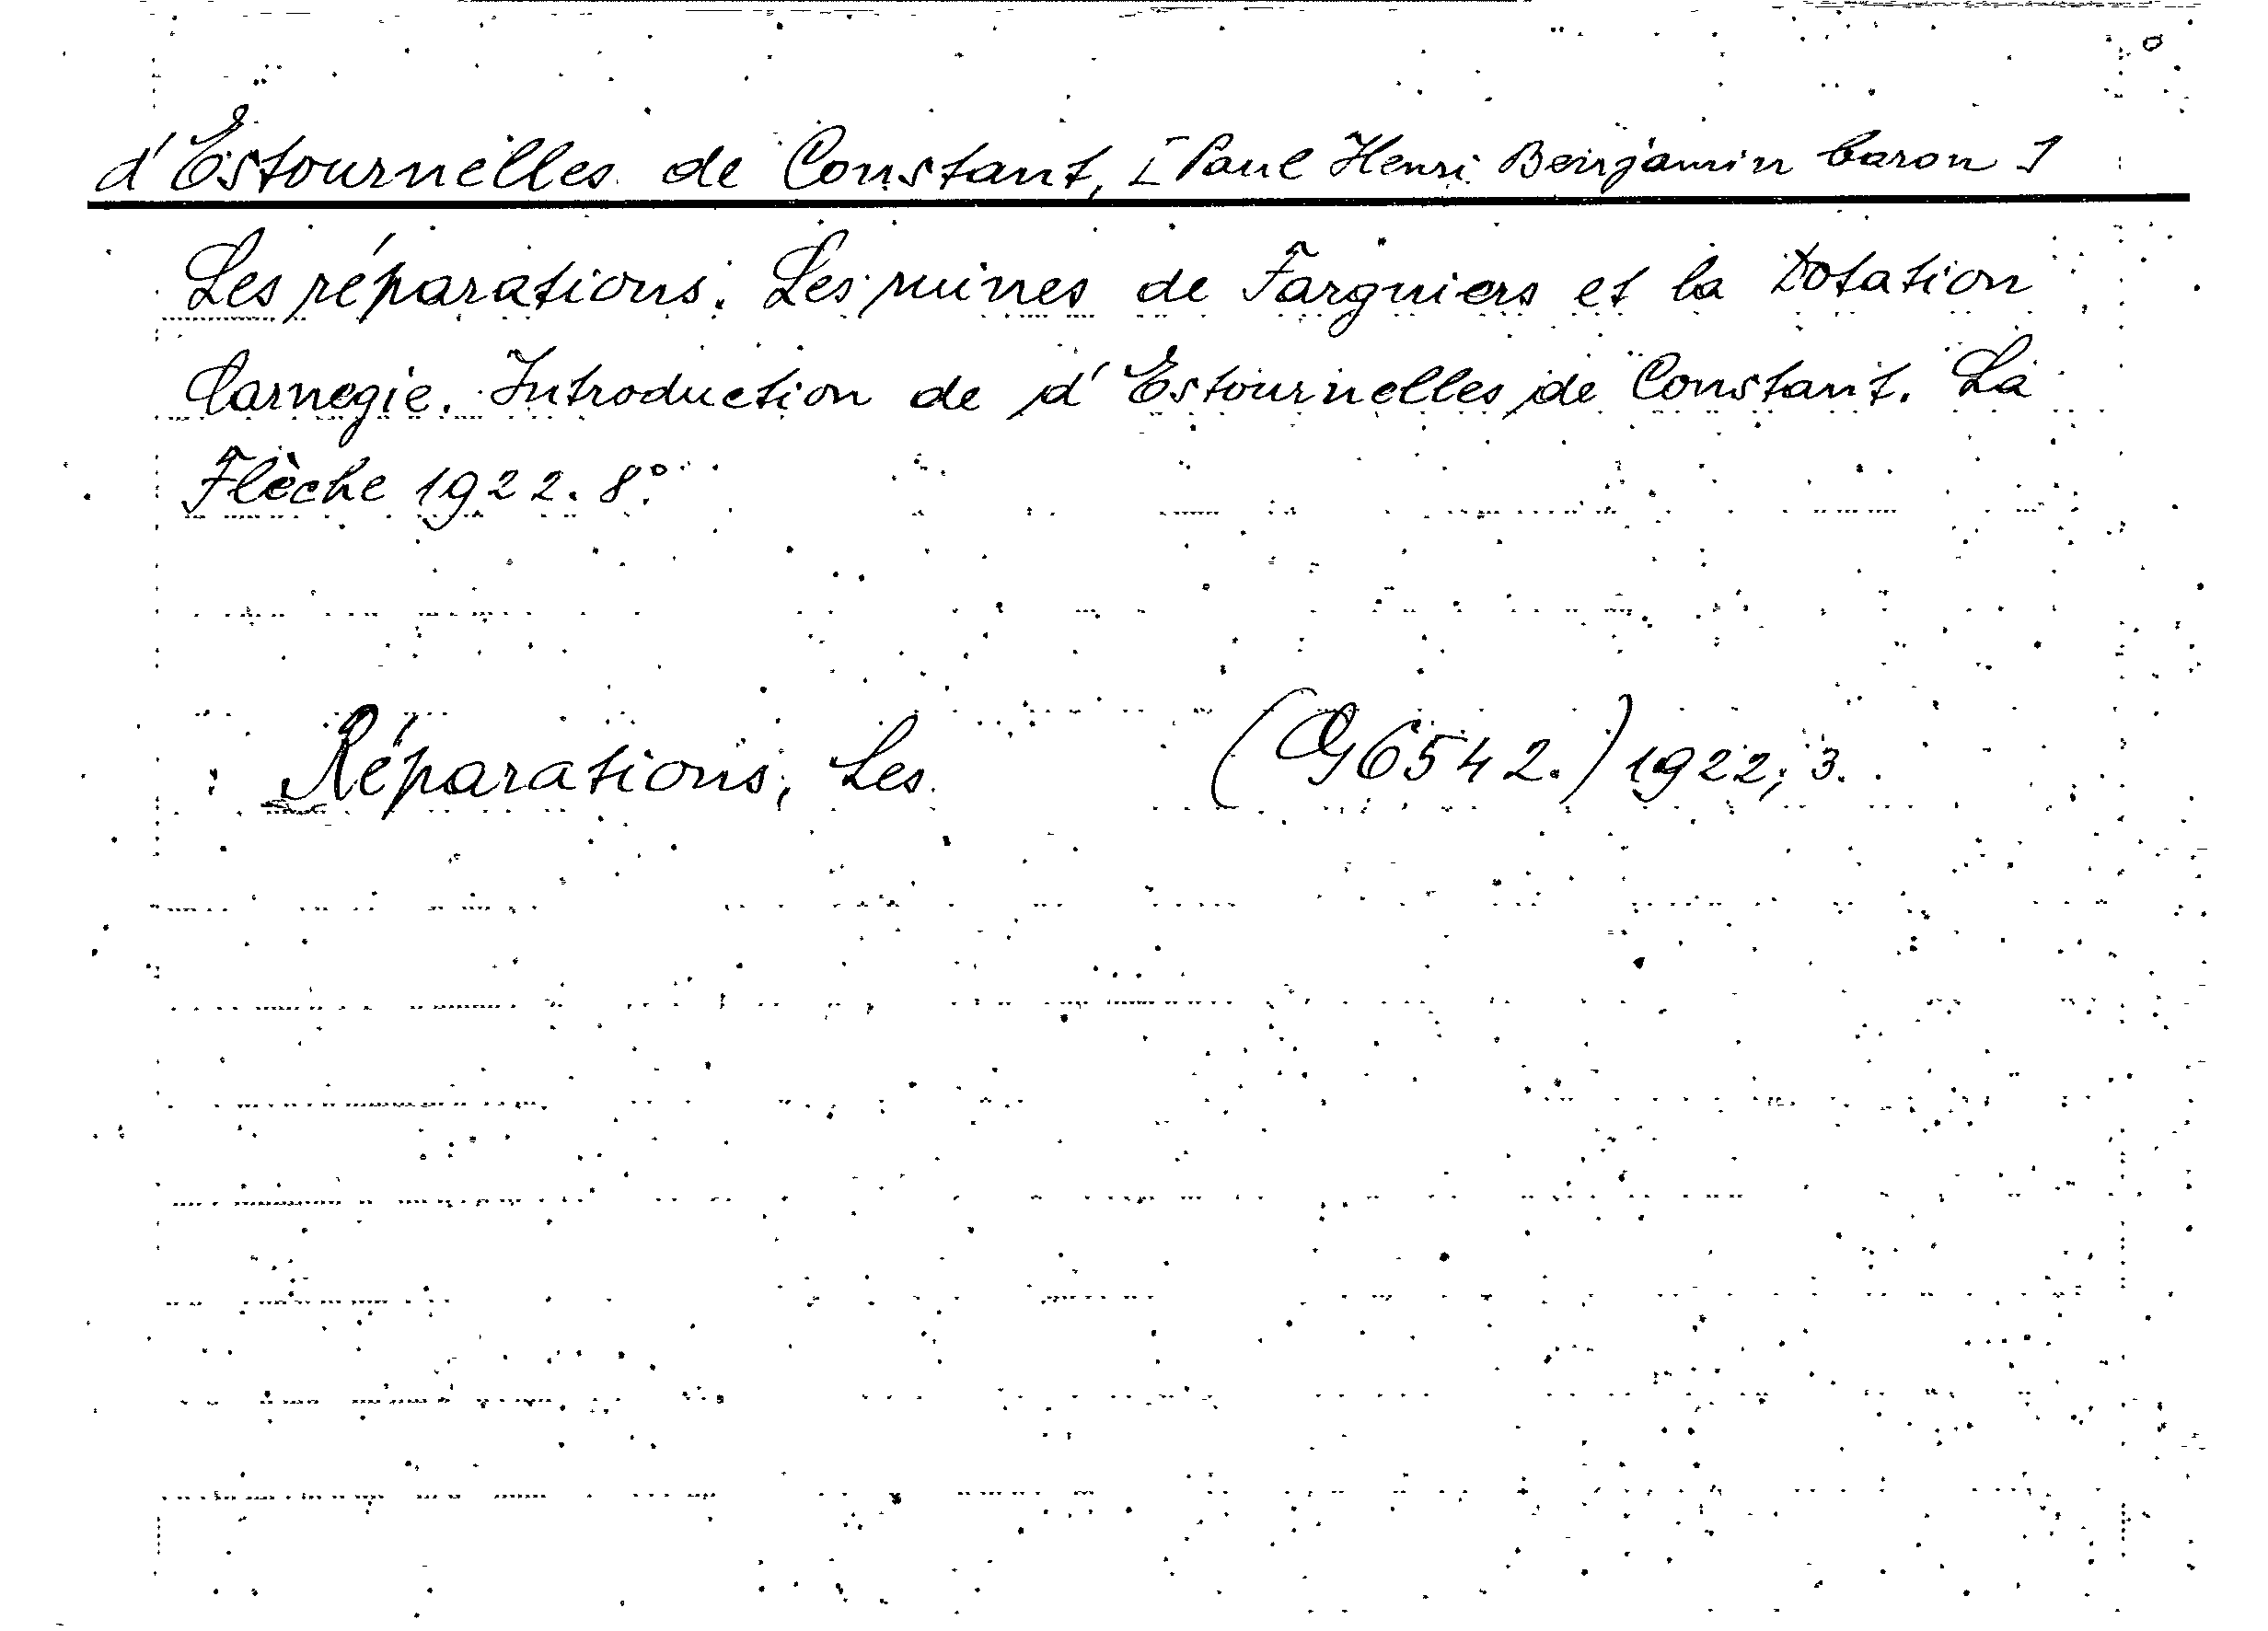 d'Estournelles de Constant, [Paul Henri Benjamin baron]
Les réparations. Les ruines de Farguiers et la Dotation
Carnegie. Introduction de d'Estournelles de Constant. La
Flèche 1922. 8°.
Réparations, Les (Og 6542.) 1922, 3.